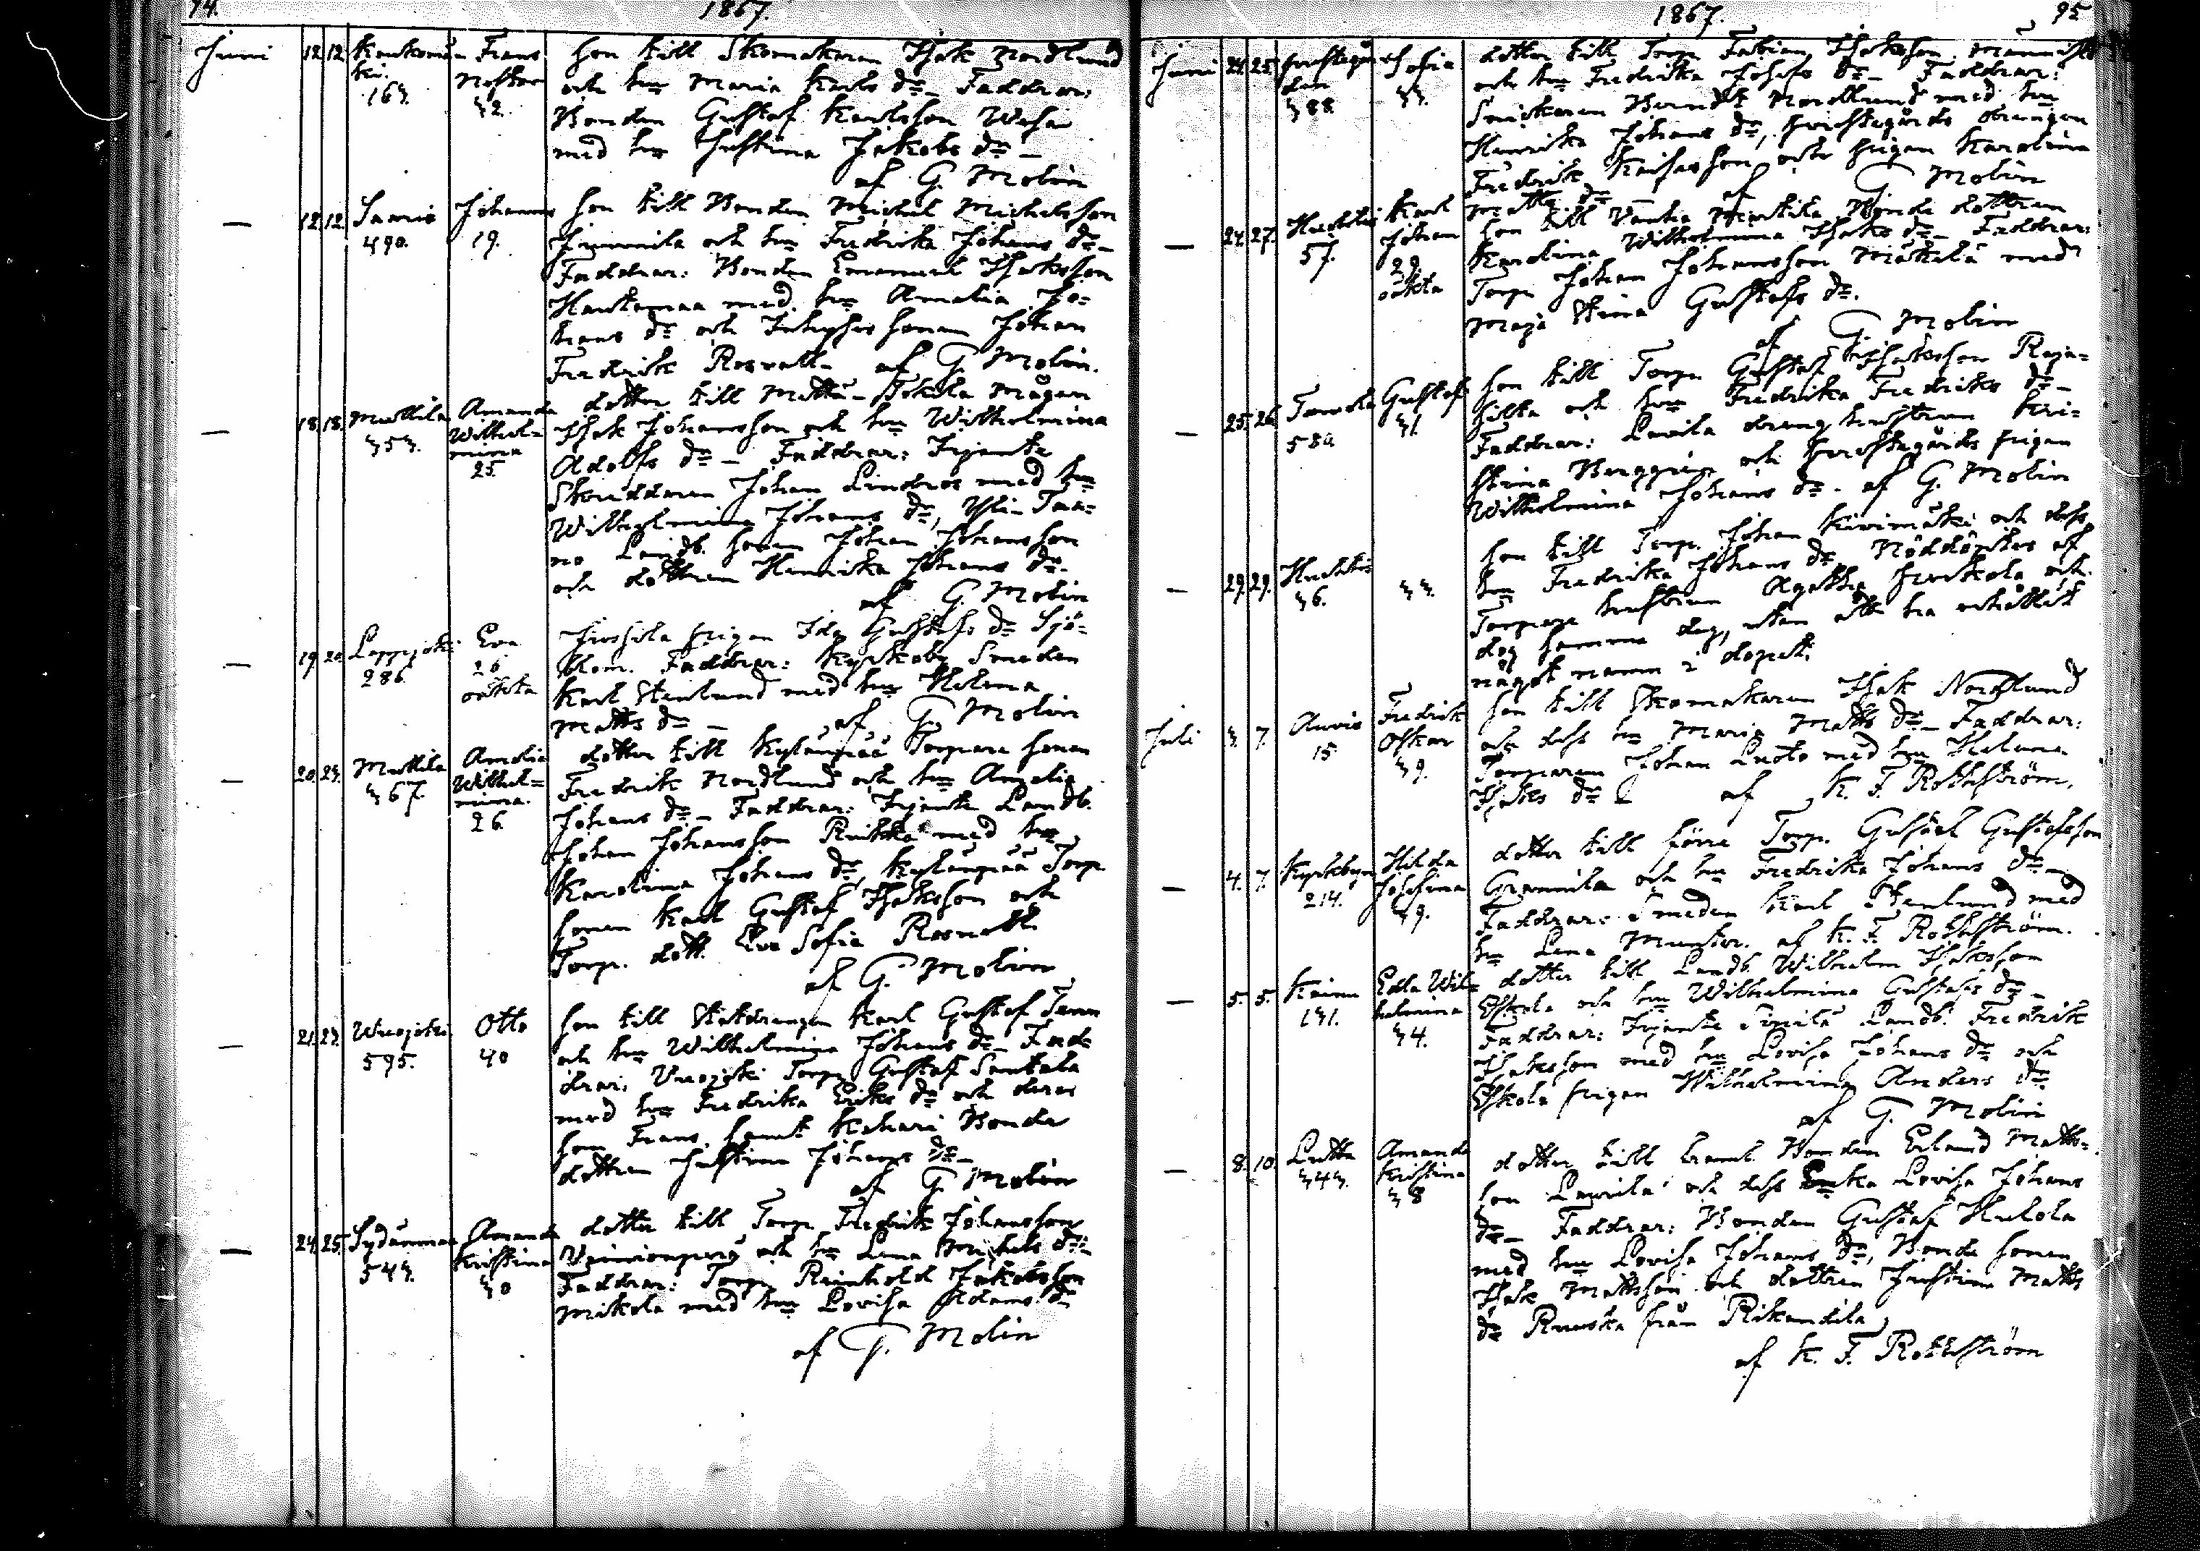 94.
1867.
Juni 12. 12. Kouko
ki.
163.
Frans
Nestor
32.
Son till Skomakaren Isak Nordlund
och hu Maria Karls dr. Faddrar:
Bonden Gustaf Karlsson Wesa
med hu Justina Jakobs dr
af G. Molin
— 12. 12. Suuris
490.
Johannes
19.
Son till Bonden Michel Michelsson
och hu Fredrika Johans dr
Faddrar: Bonden Emanuel Isaksson
Hautamaa med hu Amalia Jo=
hans dr och Inhyses sonen Johan
Fredrik Rosvall af G. Molin.
— 18. 18. Mullila
353.
Amanda
Wilhel=
mina
25.
dotter till Mattu-Eskola mågen
Isak Johansson och hu Wilhelmina
Adolfs dr Faddrar:
Skräddaren Johan Lindros med hu
Wilhelmina Johans dr, Yli-Taa=
no Landb. sonen Johan Johansson
och dottren Henrika Johans dr.
af G. Molin
— 19. 20. Loppijoki
286.
Eva
26
oäkta
pigan Ida Gustafs dr Sjö=
blom. Faddrar: Kyrkoby Smeden
Karl Stenlund med hu Helena
Matts dr af G. Molin
— 20. 23. Mullila
367.
Amalia
Wilhel=
mina.
26.
dotter till Kylänpää Torpare sonen
Fredrik Nordlund och hu Amalia
Johans dr Faddrar: Landb.
Johan Johansson med hu
Karolina Johans dr, Kylänpää Torp
sonen Karl Gustaf Isaksson och
Torp. dott. Eva Sofia Rosvall.
af G. Molin
— 21. 23. Wuojoki
595.
Otto
40
Son till Statdrängen Karl Gustaf
och hu Wilhelmina Johans dr Fad=
drar: Vuojoki Torp. Gustaf Santala
med hu Fredrika Eriks dr och deras
son Frans, samt Kahari Bonde
dottren Justina Johans dr
af G. Molin
— 24. 25. Sydänmaa
543.
Amanda
Kristina
30
dotter till Torp. Fredrik Johansson
och hu Lena Michels dr
Faddrar: Torp. Reinhold Jakobsson
Mikola med hu Lovisa Adams dr
af G. Molin
1867.
95
Juni 24. 25.
388.
Sofia
33.
dotter till Torp. Fabian Isaksson Männistö
och hu Fredrika Josefs dr Faddrar:
Snickaren Berndt Nordlund med hu
Henrika Johans dr, Prestegårds drängen
Fredrik och pigan Karolina
Matts dr af G. Molin
— 24. 27. Huhtis
57.
Karl
Johan
29
oäkta
Son till Mäkilä Bonde dottren
Karolina Wilhelmina Isaks dr Faddrar:
Torp. Johan Johansson Mäkelä med
Maja Stina Gustafs dr.
af G. Molin
— 25. 26. Tarvola
582
Gustaf
31.
Son till Torp. Gustaf Isaksson Raja=
silta och hu Fredrika Fredriks dr
Faddrar: Laurila dräng hustrun Kri=
stina Berggren och Prestegårds pigan
Wilhelmina Johans dr. af G. Molin
— 29. 29. Huhtis
36.
33.
Son till Torp. Johan Kivimäki och dess
hu Fredrika Johans dr Nöddöptes af
Torpare hustrun Agatha och
dog samma dag, utan att ha erhållit
något namn i dopet.
Juli 3. 7. Auvis
15
Fredrik
Oskar
39.
Son till Skomakaren Isak Nordlund
och dess hu Maria Matts dr Faddrar:
Torparen Johan Luoto med hu Helena
Isaks dr af K. F. Rothström.
— 4. 7. Kyrkbyn
214.
Hilda
Josefina
39.
dotter till förra Torp. Gustaf Gustafsson
Grannila och hu Fredrika Johans dr
Faddrar: Smeden Karl Stenlund med
hu Lena Munter. af K. F. Rothström.
— 5. 5. Kainu
131.
Edla Wil=
helmina
34.
dotter till Landb. Wilhelm Isaksson
Eskola och hu Wilhelmina Gustafs dr
Faddrar: Landb. Fredrik
Isaksson med hu Lovisa Johans dr och
Eskola pigan Wilhelmina Anders dr.
af G. Molin
— 8. 10. Lutta
343.
Amanda
Kristina
38
dotter till framl. Bonden Erland Matts=
son Laurila och dess Enka Lovisa Johans
dr Faddrar: Bonden Gustaf Hukola
med hu Lovisa Johans dr, Bonde sonen
Isak Mattsson och dottren Justina Matts
dr Ruuska från Rikandila
af K. F. Rothström